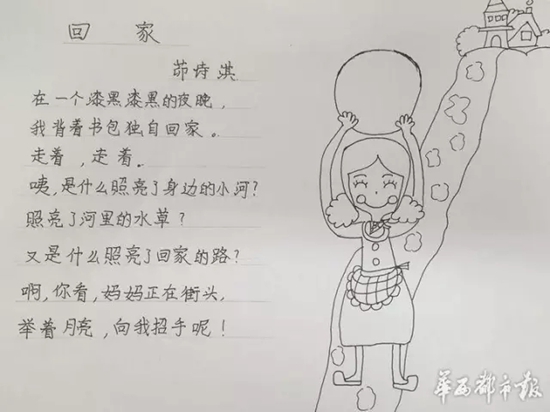 回 家
茆诗淇
在一个漆黑漆黑的夜晚，
我背着书包独自回家。
走着，走着。
咦，是什么照亮了身边的小河？
照亮了河里的水草？
又是什么照亮了回家的路？
啊，你看，妈妈正在街头，
举着月亮，向我招手呢！
华西都市报